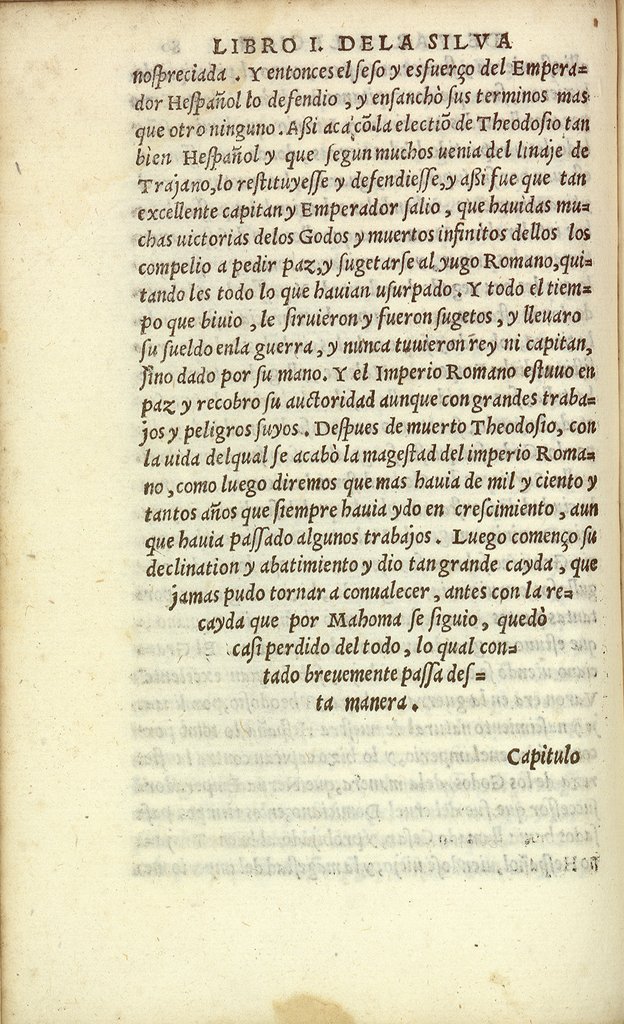 LIBRO I. DE LA SILVA
noſpreciada . Y entonces el ſeſo y esfuerço del Empera=
dor Heſpañol lo defendio , y enſanchò ſus terminos mas
que otro ninguno. Aßi acacõ la electiõ de Theodoſio tan
bien Heſpañol y que ſegun muchos uenia del linaje de
Trajano, lo reſtituyeſſe y defendieſſe, y aßi fue que tan
excellente capitan y Emperador ſalio , que hauidas mu=
chas uictorias delos Godos y muertos infinitos dellos los
compelio a pedir paz, y ſugetarſe al yugo Romano, qui=
tando les todo lo que hauian uſurpado . Y todo el tiem=
po que biuio , le ſiruieron y fueron ſugetos , y lleuaro
ſu ſueldo enla guerra , y nunca tuuieron rey ni capitan,
ſino dado por ſu mano. Y el Imperio Romano eſtuuo en
paz y recobro ſu auctoridad aunque con grandes traba=
jos y peligros ſuyos . Deſpues de muerto Theodoſio, con
la uida delqual ſe acabò la mageſtad del imperio Roma=
no , como luego diremos que mas hauia de mil y ciento y
tantos años que ſiempre hauia ydo en creſcimiento , aun
que hauia paſſado algunos trabajos . Luego començo ſu
declination y abatimiento y dio tan grande cayda , que
jamas pudo tornar a conualecer , antes con la re=
cayda que por Mahoma ſe ſiguio , quedò
caſi perdido del todo , lo qual con=
tado breuemente paſſa deſ=
ta manera .
Capitulo